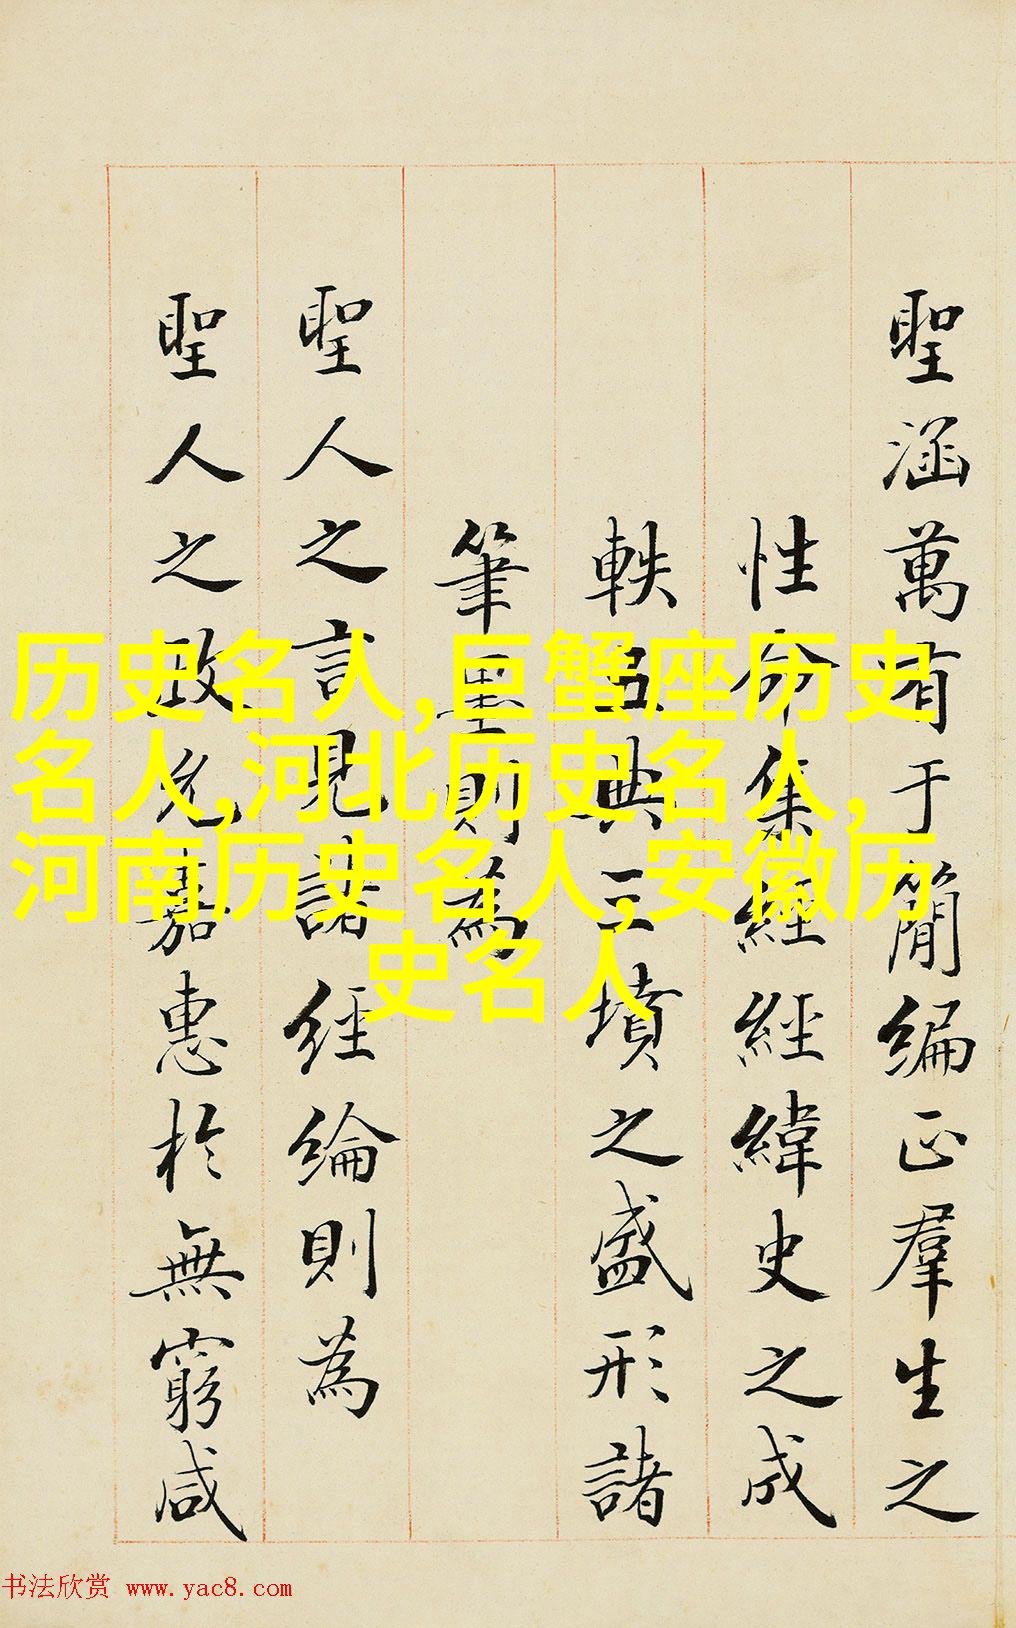 聖涵萬有于簡編正羣生之
性命集經經緯史之成
軼丘典三墳之盛形諸
筆墨則為
聖人之言見諸經綸則為
聖人之政允嘉惠於無窮咸
历史名人,巨蟹座历史
名人,河北历史名人,
河南历史名人,安徽历
史名人
书法欣赏 www.yac8.com